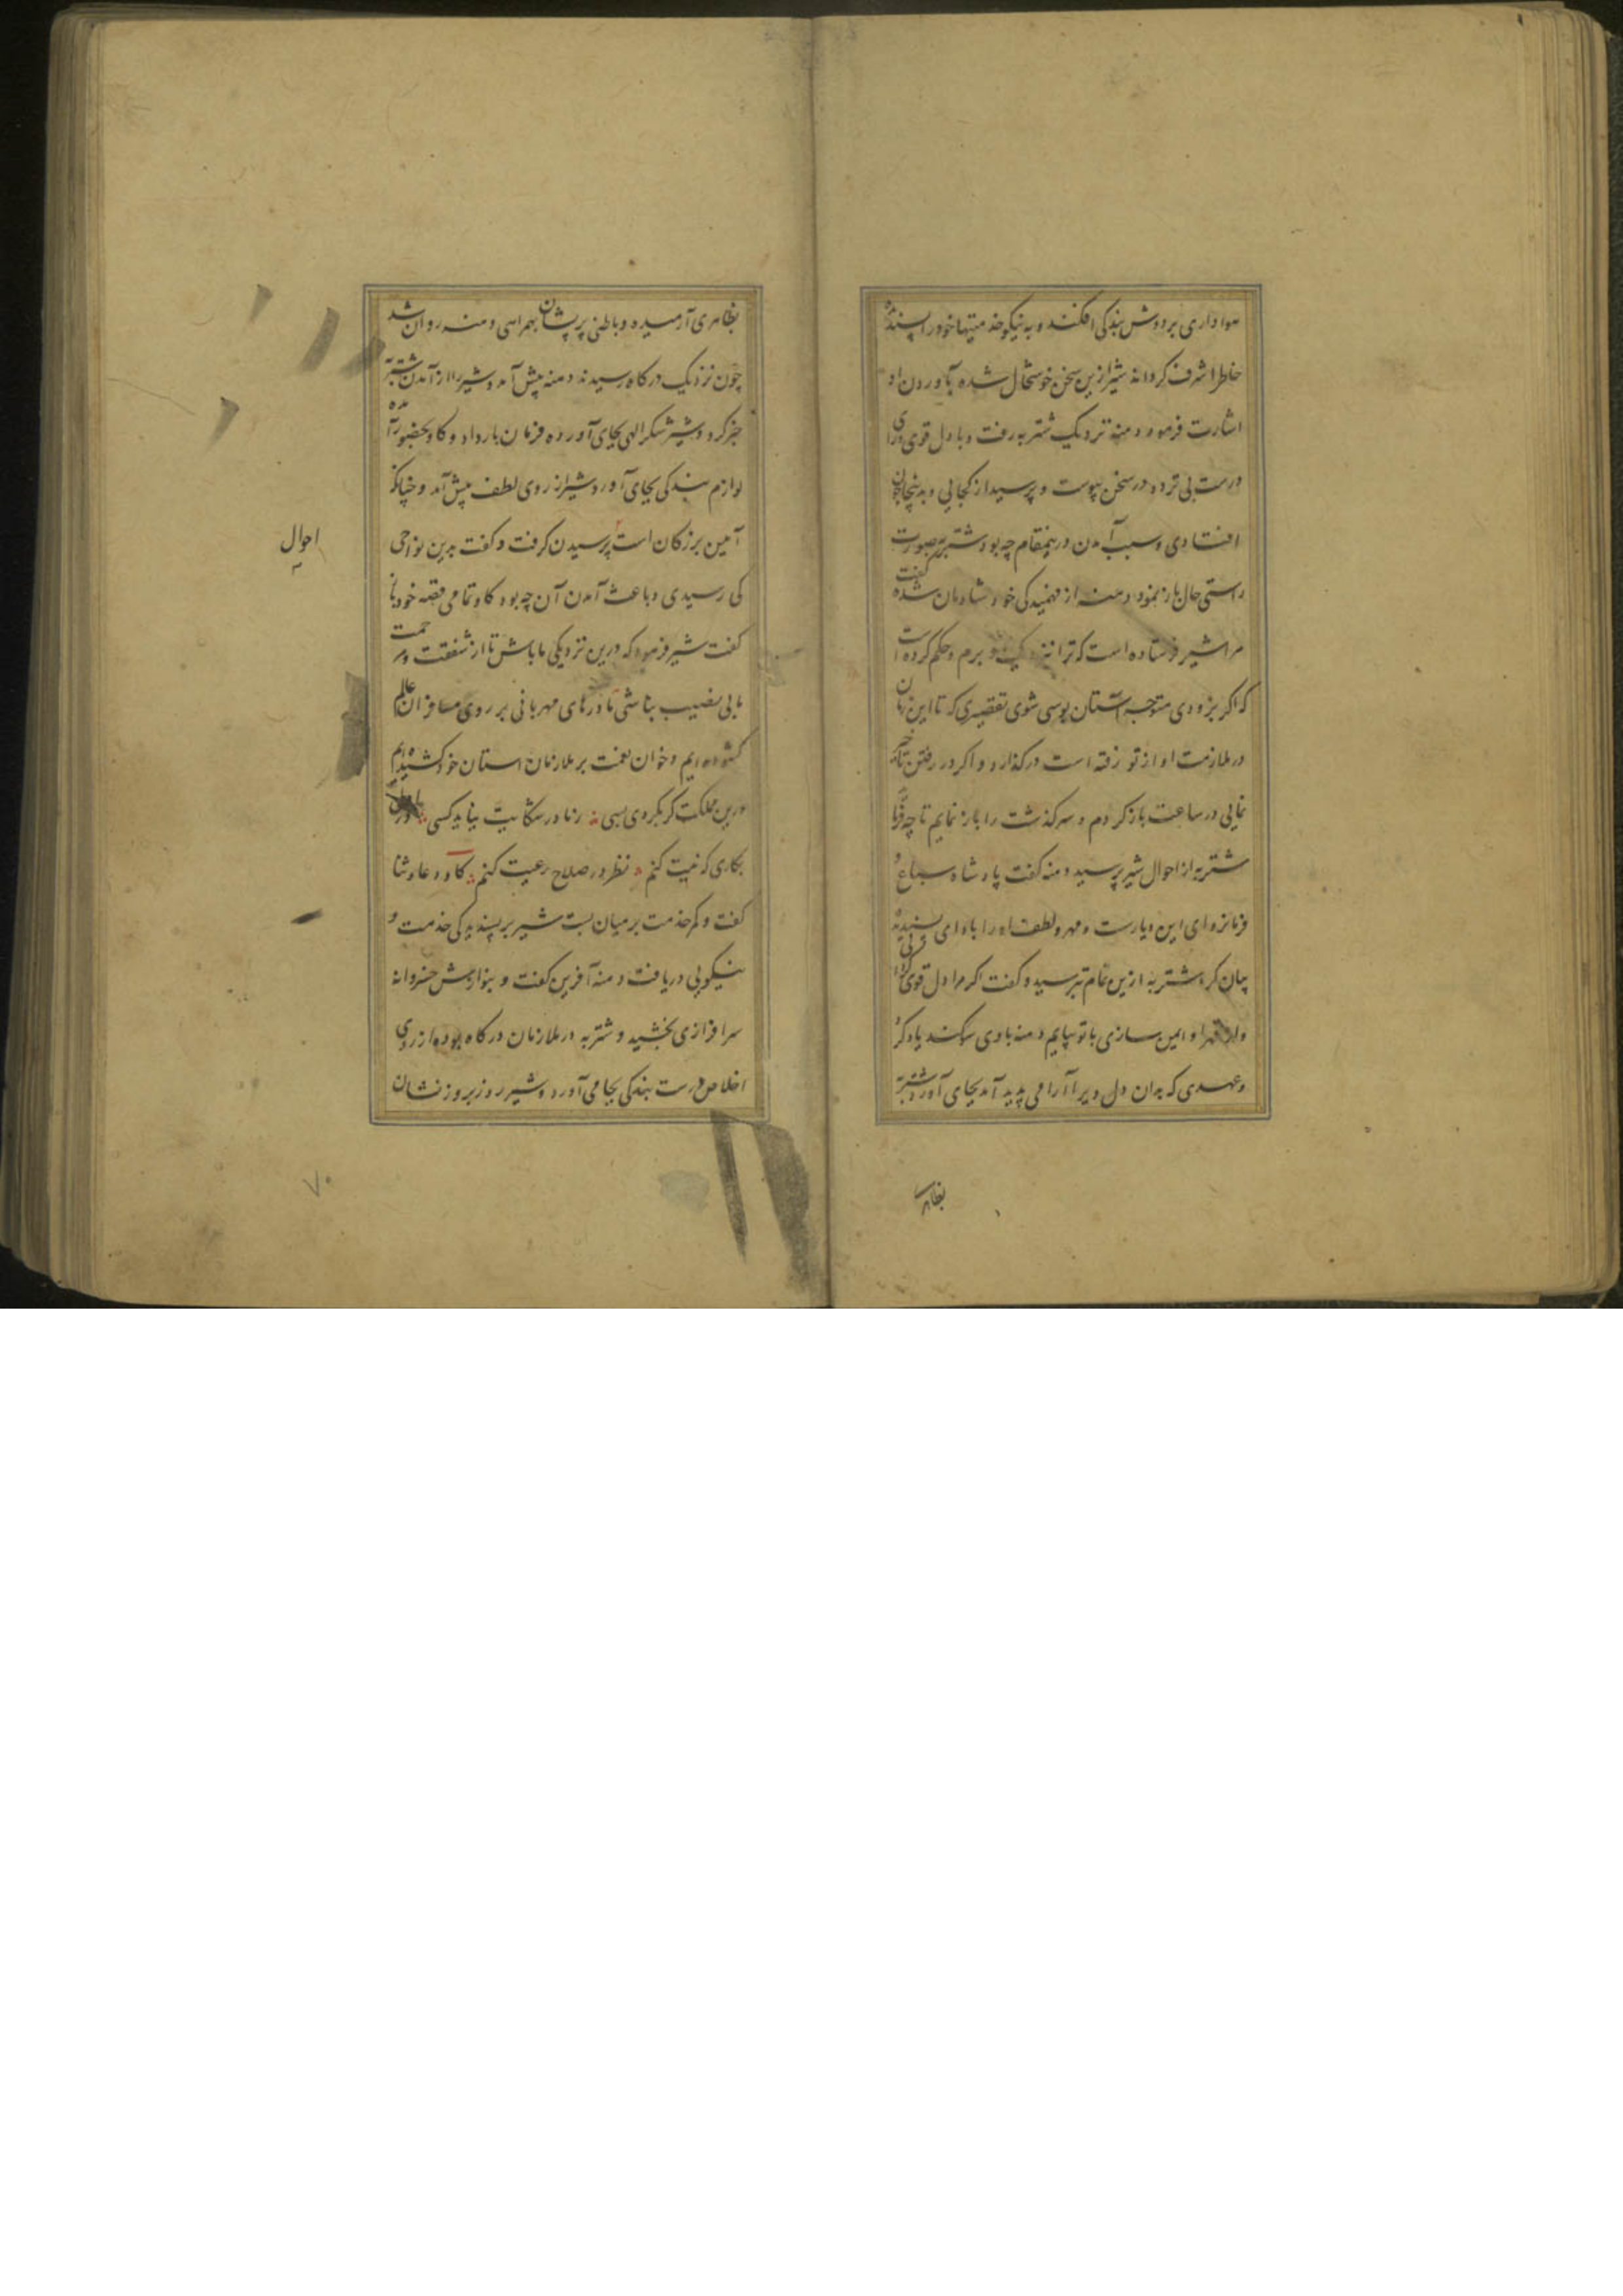 هواداری بر دوش بندگی افکنده و به نیکو خدمتیها خود را پسندیده
خاطر اشرف گرداند شیر ازین سخن خوشحال شده بآوردن او
اشارت فرمود دمنه نزدیک شتربه رفت و با دل قوی و رای
درست بی تردد در سخن پیوست و پرسید از کجایی و بدینجا چون
افتادی و سبب آمدن درینمقام چه بود شتربه صورت
راستی حال باز نمود دمنه از فهمیدگی خود شادمان شده گفت
مرا شیر فرستاده است که ترا نزدیک او برم و حکم کرده است
که اگر بزودی متوجه آستان بوسی شوی تقصیری که تا این زمان
در ملازمت او از تو رفته است درگذارد و اگر در رفتن تاخیر
نمایی در ساعت بازگردم و سرگذشت را باز نمایم تا چه فرماید
شتربه از احوال شیر پرسید دمنه گفت پادشاه سباع و
فرمانروای این دیارست و مهر و لطف او را بادای پسندیده
بیان کرد شتربه ازین تمام ترسید و گفت اگر مرا دل قوی گردانی
و از قهر او ایمن سازی با تو بیایم دمنه با وی سوگند یاد کرد
و عهدی که بدان دل ویرا آرامی پدید آمد بجای آورد شتربه
بظاهر
بظاهری آرمیده و باطنی پریشان بهمراهی دمنه روان شد
چون نزدیک درگاه رسیدند دمنه پیش آمد و شیر را از آمدن شتربه
خبر کرد و شیر شکر الهی بجای آورده فرمان بار داد و گاو بحضور آمده
لوازم بندگی بجای آورد شیر از روی لطف پیش آمد و چنانکه
آیین بزرگان است پرسیدن گرفت و گفت بدین نواحی
کی رسیدی و باعث آمدن آن چه بود گاو تمامی قصه خود باز
گفت شیر فرمود که درین نزدیکی ما باش تا از شفقت و مرحمت
ما بی نصیب نباشی تا درهای مهربانی بر روی مسافران عالم
گشوده‌ایم و خوان نعمت بر ملازمان استان خود کشیده‌ایم
درین مملکت گر بگردی بسی ز ما در شکایت نیابد کسی
بکاری که نیت کنم نظر در صلاح رعیت کنم گاو دعا و ثنا
گفت و کمر خدمت بر میان بست شیر بر پسندیدگی خدمت و
نیکویی دریافت دمنه آفرین گفت و بنوازش خسروانه
سرافرازی بخشید و شتربه در ملازمان درگاه بوده از روی
اخلاص درست بندگی بجا می آورد و شیر روز بروز نشان
احوال
۷۰